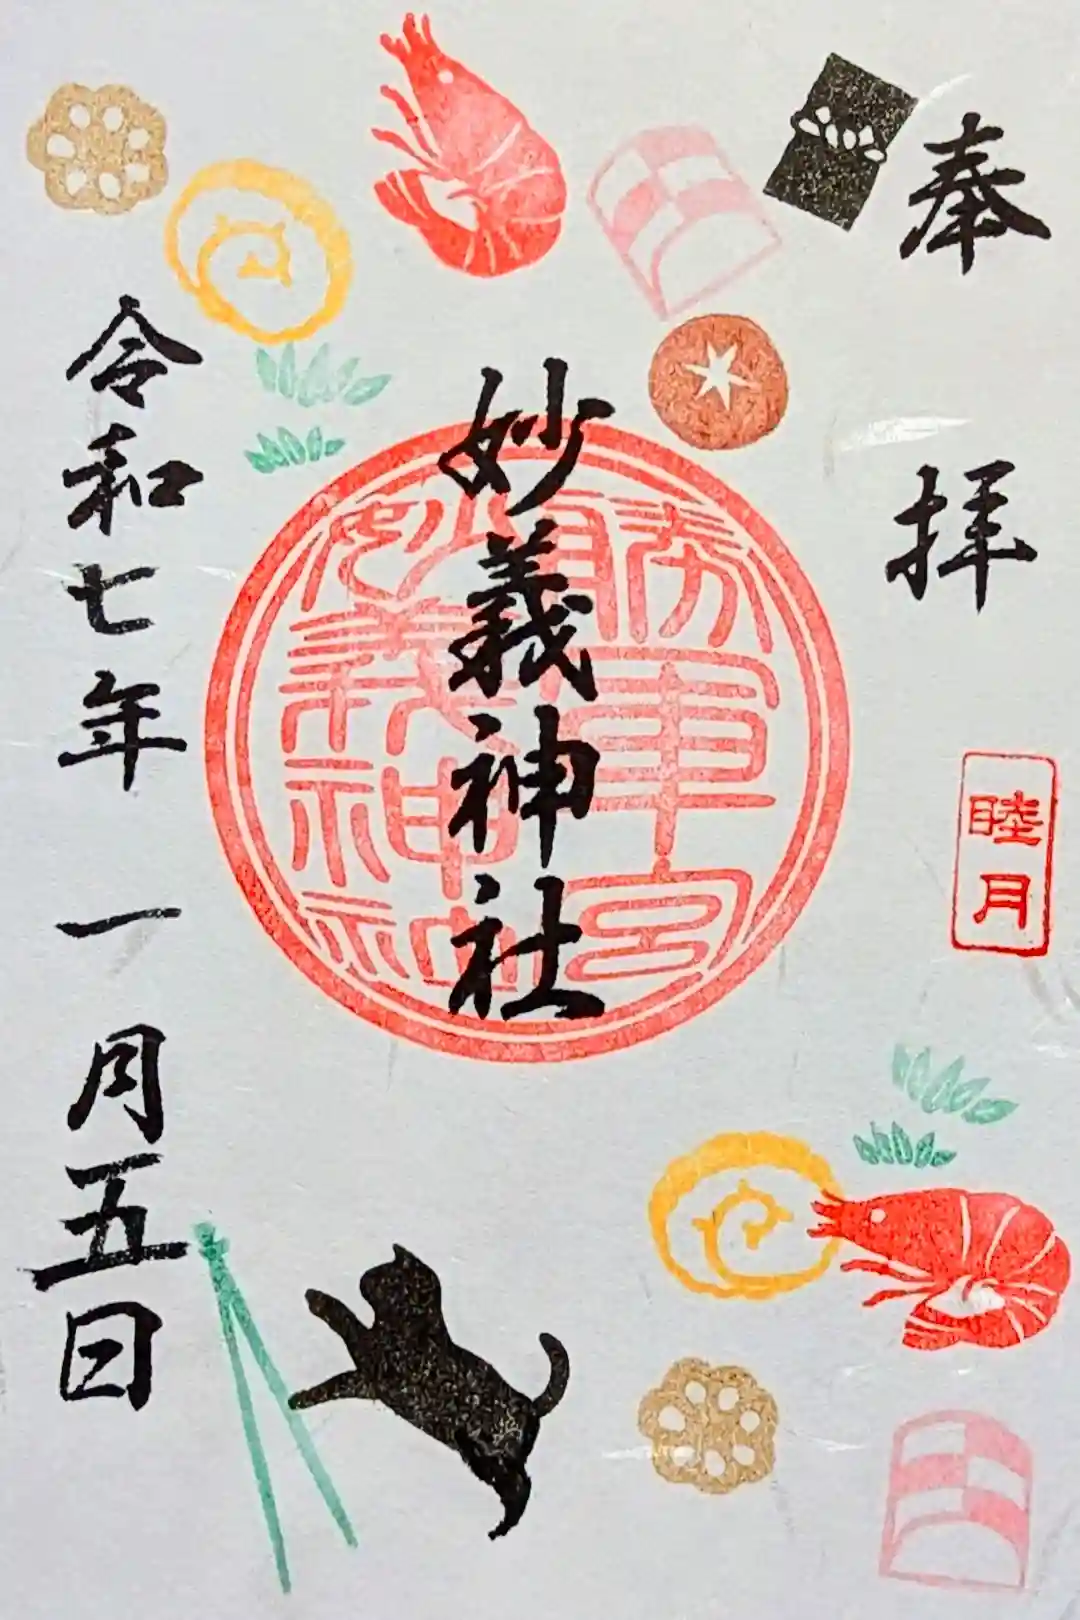 奉拝
睦月
妙義神社
勝軍宮
妙義神社
令和七年一月五日